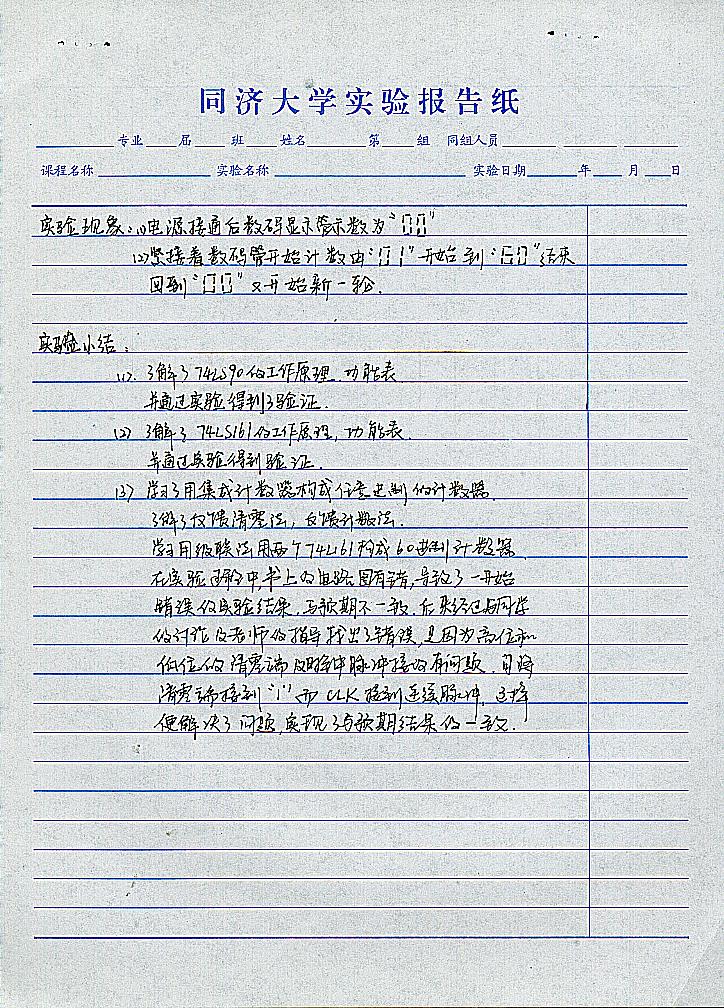 同济大学实验报告纸
专业 届 班 姓名 第 组 同组人员
课程名称 实验名称 实验日期 年 月 日
实验现象：(1)电源接通后数码显示管示数为“00”
(2)紧接着数码管开始计数由“01”开始到“60”结束
回到“00”又开始新一轮.
实验小结：
(1). 了解了74LS90的工作原理, 功能表
并通过实验得到了验证.
(2) 了解了74LS161的工作原理, 功能表.
并通过实验得到验证.
(3) 学习了用集成计数器构成任意进制的计数器.
了解了反馈清零法, 反馈计数法.
学习用级联法用两个74LS161构成60进制计数器
在实验过程中, 书上的电路图有错, 导致了一开始
错误的实验结果, 与预期不一致. 后来经过与同学
的讨论及老师的指导找出了错误, 是因为高位和
低位的清零端及时钟脉冲接的有问题.
清零端接到“1”而CLK接到连续脉冲. 这样
便解决了问题, 实现了与预期结果的一致.